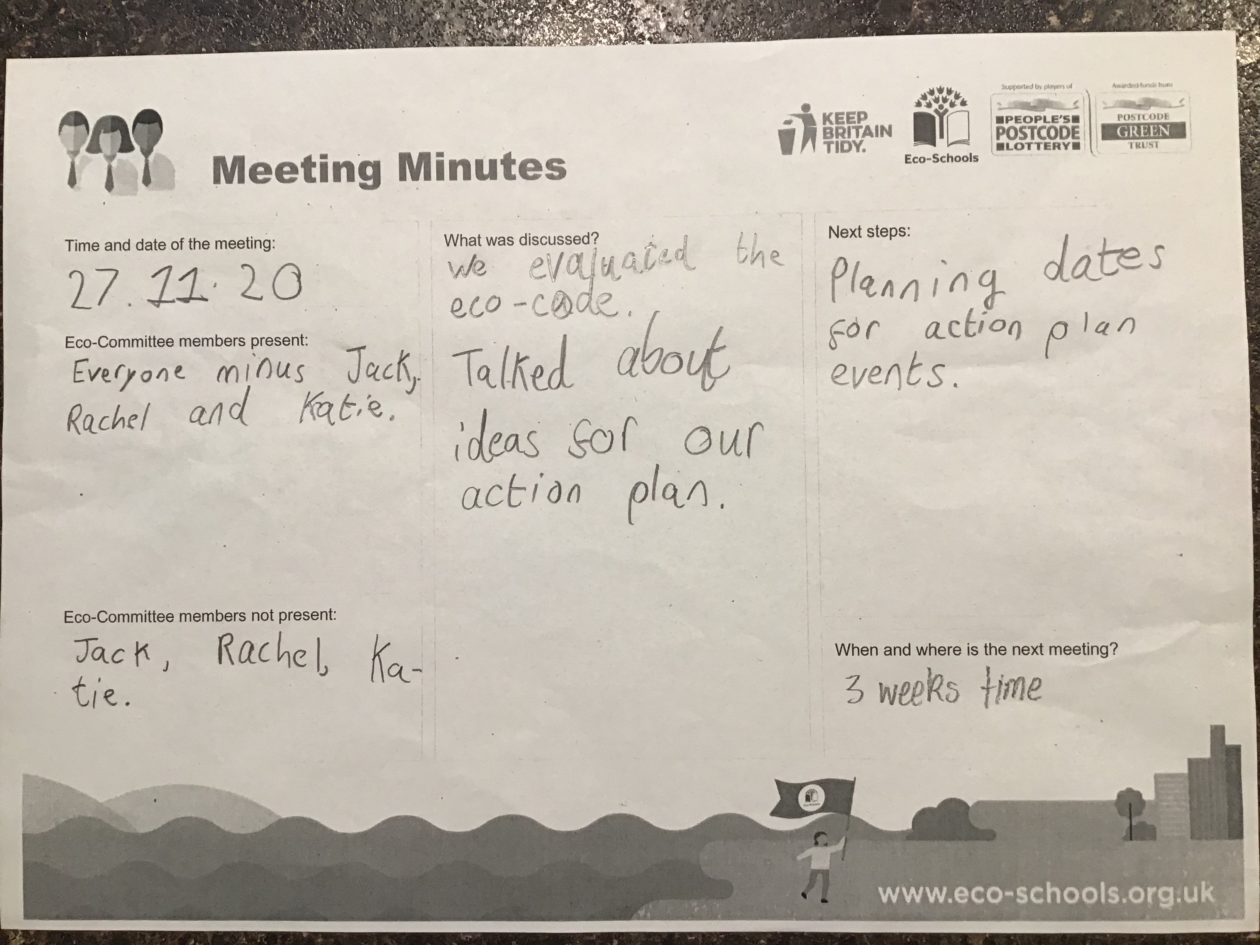 Meeting Minutes
KEEP
BRITAIN
TIDY.
Eco-Schools
Supported by players of
PEOPLE'S
POSTCODE
LOTTERY
Awarded funds from
POSTCODE
GREEN
TRUST
Time and date of the meeting:
27.11.20
Eco-Committee members present:
Everyone minus Jack,
Rachel and Katie.
Eco-Committee members not present:
Jack, Rachel, Ka-
tie.
What was discussed?
We evaluated the
eco-code.
Talked about
ideas for our
action plan.
Next steps:
Planning dates
for action plan
events.
When and where is the next meeting?
3 weeks time
www.eco-schools.org.uk